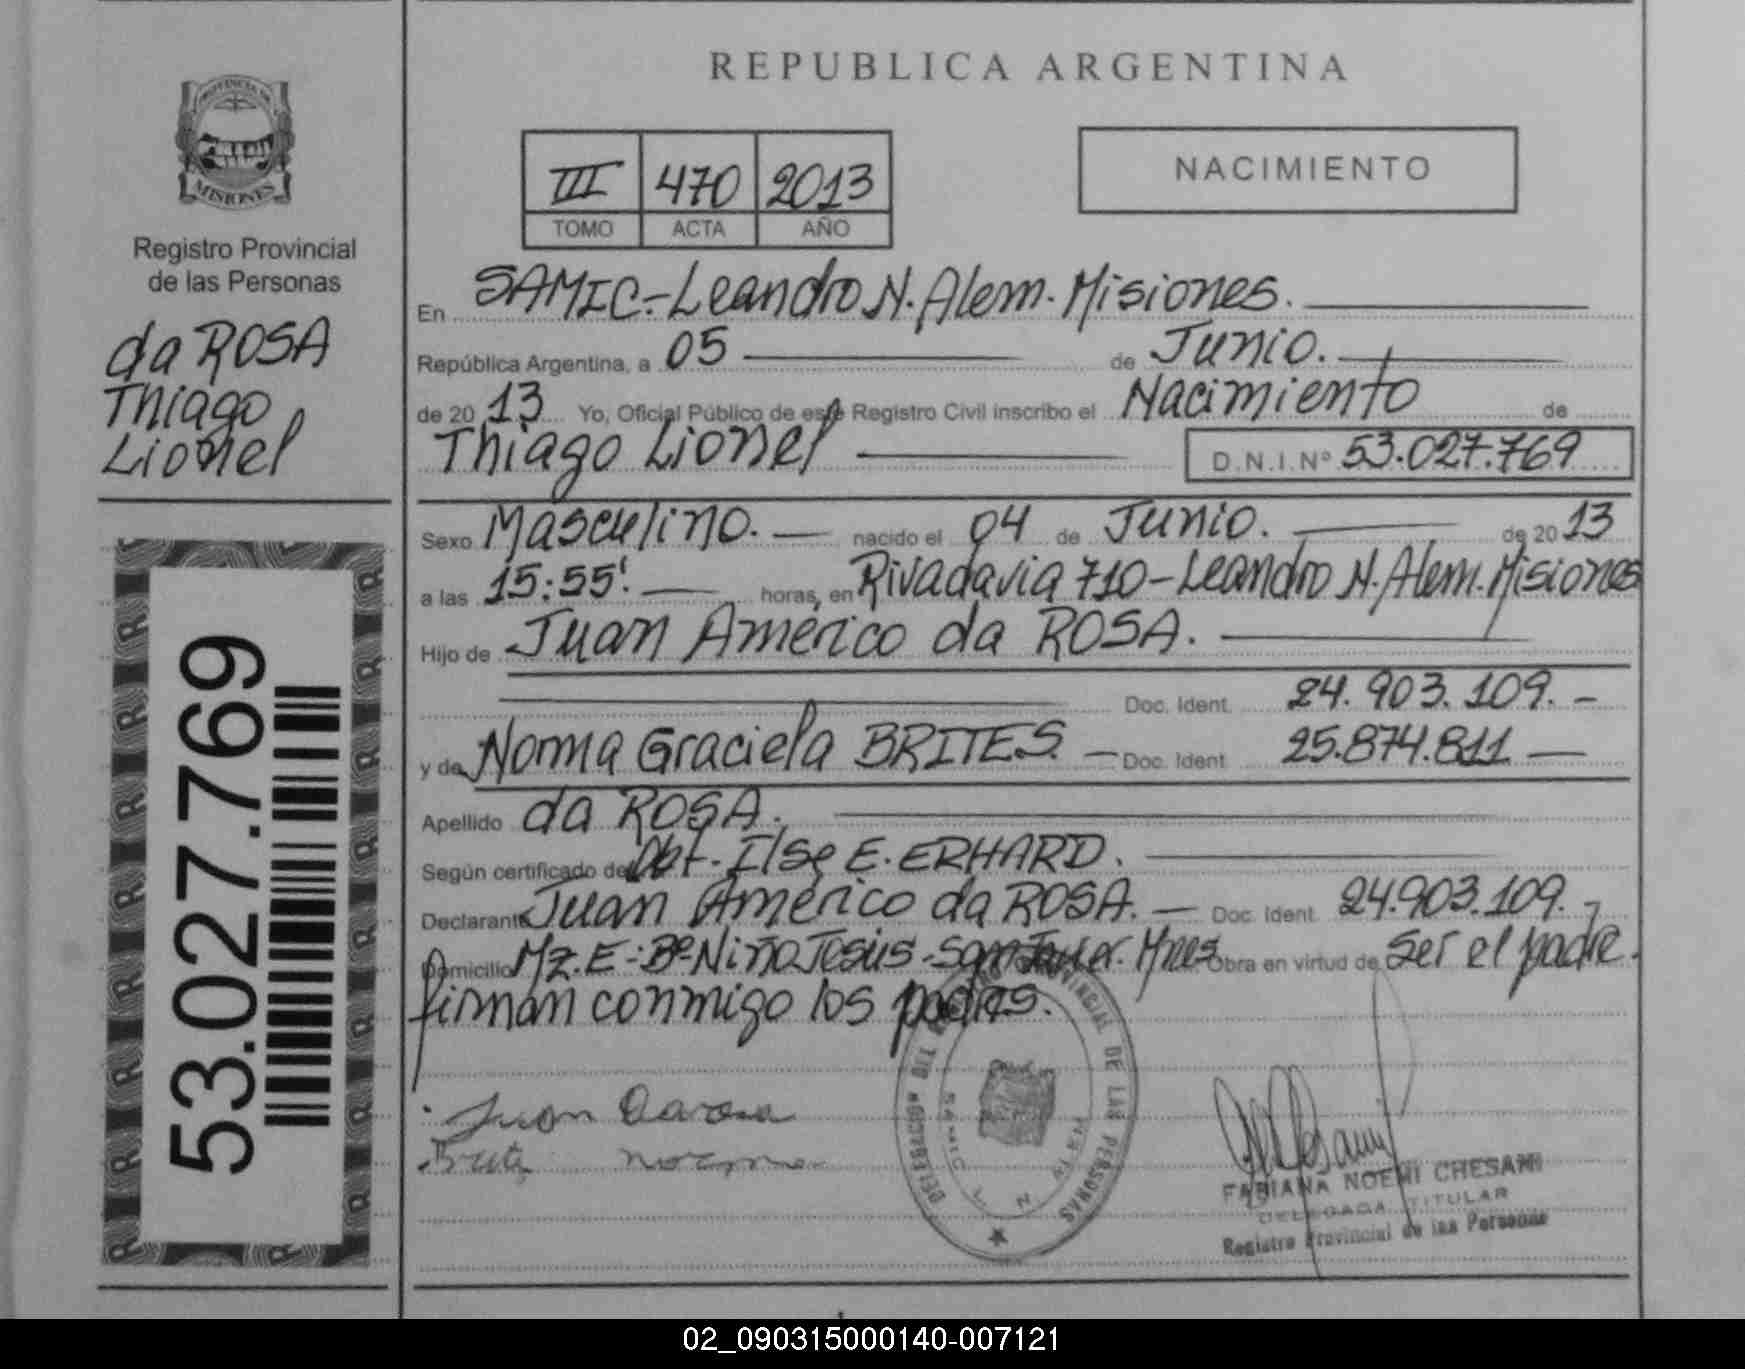 REPUBLICA ARGENTINA
PROVINCIA DE
MISIONES
Registro Provincial
de las Personas
da ROSA
Thiago
Lionel
53.027.769
III 470 2013
TOMO ACTA AÑO
NACIMIENTO
En SAMIC.-Leandro N. Alem. Misiones.
República Argentina, a 05 de Junio.
de 2013 Yo, Oficial Público de este Registro Civil inscribo el Nacimiento de
Thiago Lionel D.N.I.Nº 53.027.769
Sexo Masculino. nacido el 04 de Junio. de 2013
a las 15:55' horas, en Rivadavia 710-Leandro N. Alem. Misiones
Hijo de Juan Américo da ROSA.
Doc. Ident. 24.903.109.-
y de Norma Graciela BRITES. - Doc. Ident. 25.874.811
Apellido da ROSA.
Según certificado de Obt. Ilse E. ERHARD.
Declarante Juan Américo da ROSA. - Doc. Ident. 24.903.109.-
Domicilio Mz.E-Bº Niño Jesús-San Javier. Mnes Obra en virtud de Ser el padre.
firman conmigo los padres.
Juan Darosa
norma
DELEGACION DEL PROVINCIAL DE LAS PERSONAS
SAMIC L N ALEM
FABIANA NOEMI CHESANI
DELEGADA TITULAR
Registro Provincial de las Personas
02_090315000140-007121